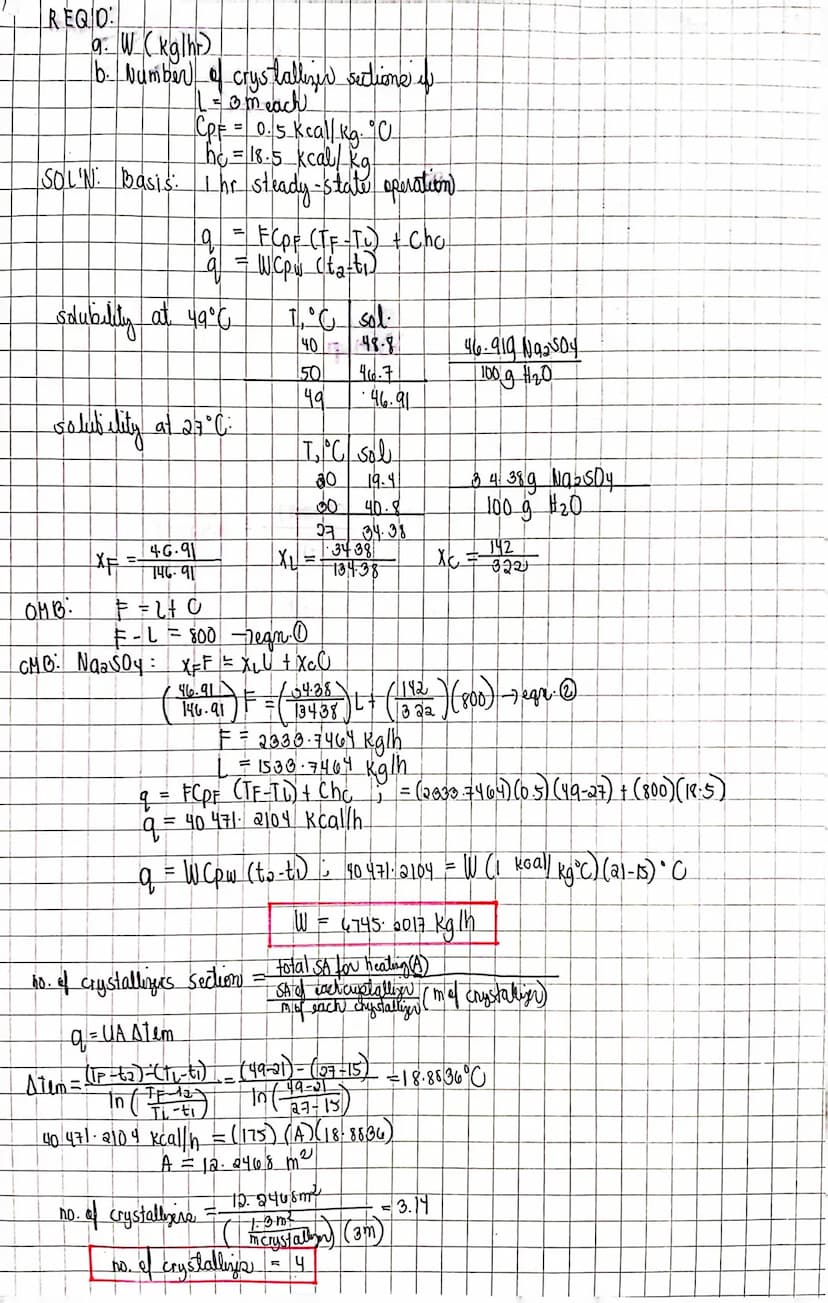 REQ'D:
a. W (kg/hr)
b. Number of crystallizer sections if
L = 3m each
CPF = 0.5 Kcal/kg.°C
hc = 18.5 kcal/kg
SOL'N: Basis: 1 hr steady-state operation
q = FCPF (TF-TL) + Chc
q = WCpw (t2-t1)
solubility at 49°C
T, °C sol.
40 48.8
50 46.7
49 46.91
46.91g Na2SO4
100 g H2O
solubility at 27°C:
T, °C sol
20 19.4
30 40.8
27 34.38
34.38g Na2SO4
100 g H2O
XF = 46.91/146.91 XL = 34.38/134.38 XC = 142/322
OMB: F = L + C
F - L = 800 → eqn. ①
CMB: Na2SO4: XFF = XLL + XCC
(46.91/146.91) F = (34.38/134.38) L + (142/322)(800) → eqn. ②
F = 2333.7464 Kg/h
L = 1533.7464 Kg/h
q = FCPF (TF-TL) + Chc ; = (2333.7464)(0.5)(49-27) + (800)(18.5)
q = 40 471.2104 Kcal/h
q = WCpw (t2-t1) ; 40 471.2104 = W (1 kcal/kg°C)(21-15)°C
W = 6745.2017 Kg/h
no. of crystallizers section = total SA for heating (A)
SA of each crystallizer/m of each crystallizer (m of crystallizer)
q = UAΔTem
ΔTem = (TF-t2)-(TL-t1) / ln(TF-t2/TL-t1) = (49-21)-(27-15) / ln(49-21/27-15) = 18.8836°C
40 471.2104 kcal/h = (175)(A)(18.8836)
A = 12.2468 m²
no. of crystallizers = 12.2468m² / (1.3m²/m crystallizer)(3m) = 3.14
no. of crystallizer = 4